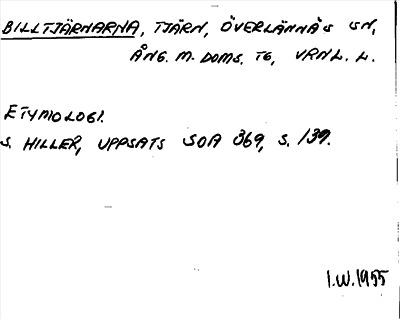 BILLTJÄRNARNA, TJÄRN, ÖVERLÄNNÄS SN,
ÅNG. M. DOMS. TG, VRNL. L.
ETYMOLOGI.
S. HILLER, UPPSATS SOA 369, S. 139.
I.W.1955